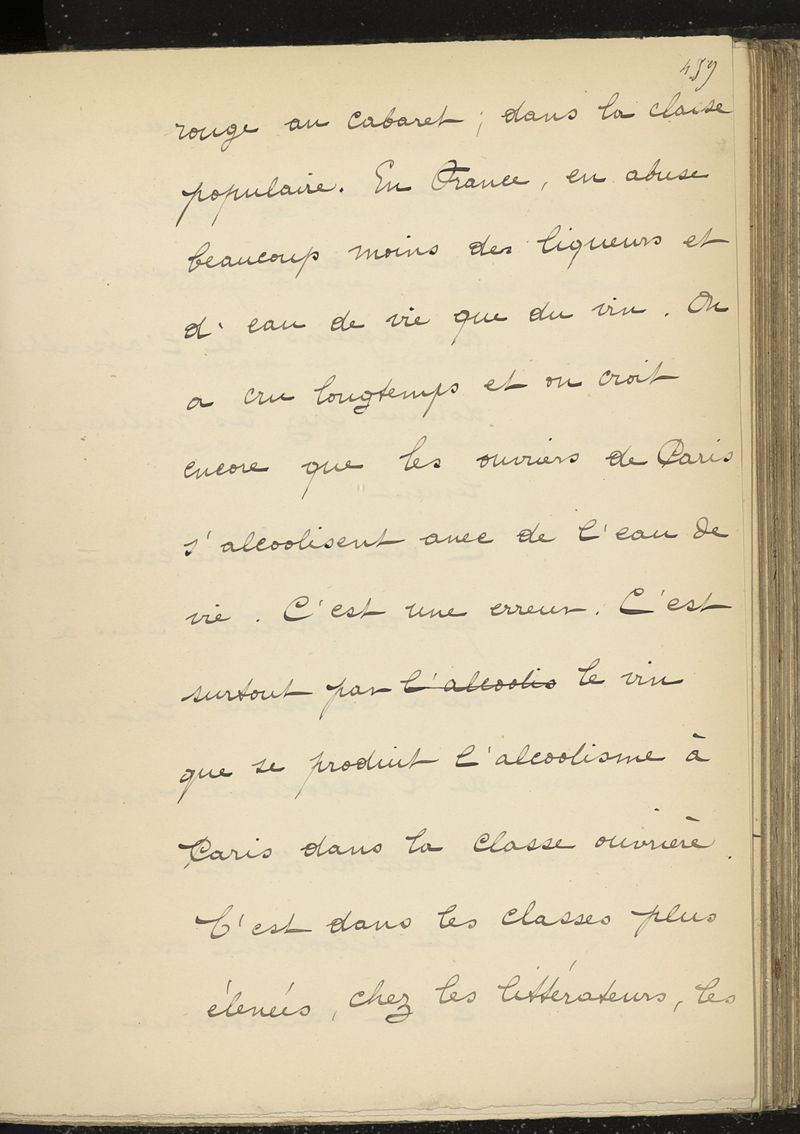 459
rouge au cabaret ; dans la classe
populaire. En France, en abuse
beaucoup moins des liqueurs et
d'eau de vie que du vin. On
a cru longtemps et on croit
encore que les ouvriers de Paris
s'alcoolisent avec de l'eau de
vie. C'est une erreur. C'est
surtout par l'alcoolis le vin
que se produit l'alcoolisme à
Paris dans la classe ouvrière.
C'est dans les classes plus
élevées, chez les littérateurs, les